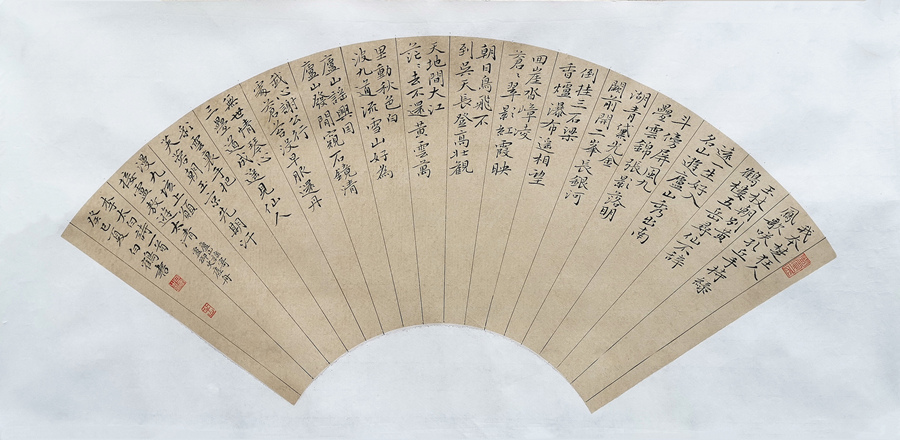 我本楚狂人
鳳歌笑孔丘手持綠
玉杖朝別黃
鶴樓五岳尋仙不辭
遠一生好入
名山遊廬山秀出南
斗傍屏風九
疊雲錦張影落明
湖青黛光金
闕前開二峯長銀河
倒挂三石梁
香爐瀑布遙相望
回崖沓嶂凌
蒼〻翠影紅霞映
朝日鳥飛不
到吳天長登高壯觀
天地間大江
茫〻去不還黃雲萬
里動秋色白
波九道流雪山好為
廬山謠興因
廬山發閒窺石鏡清
我心謝公行
處蒼苔沒早服還丹
無世情琴心
三疊道成遙見仙人
彩雲裏手把
芙蓉朝玉京先期汗
漫九垓上願
接盧敖遊太清
李太白詩一首
癸巳夏白鶴書